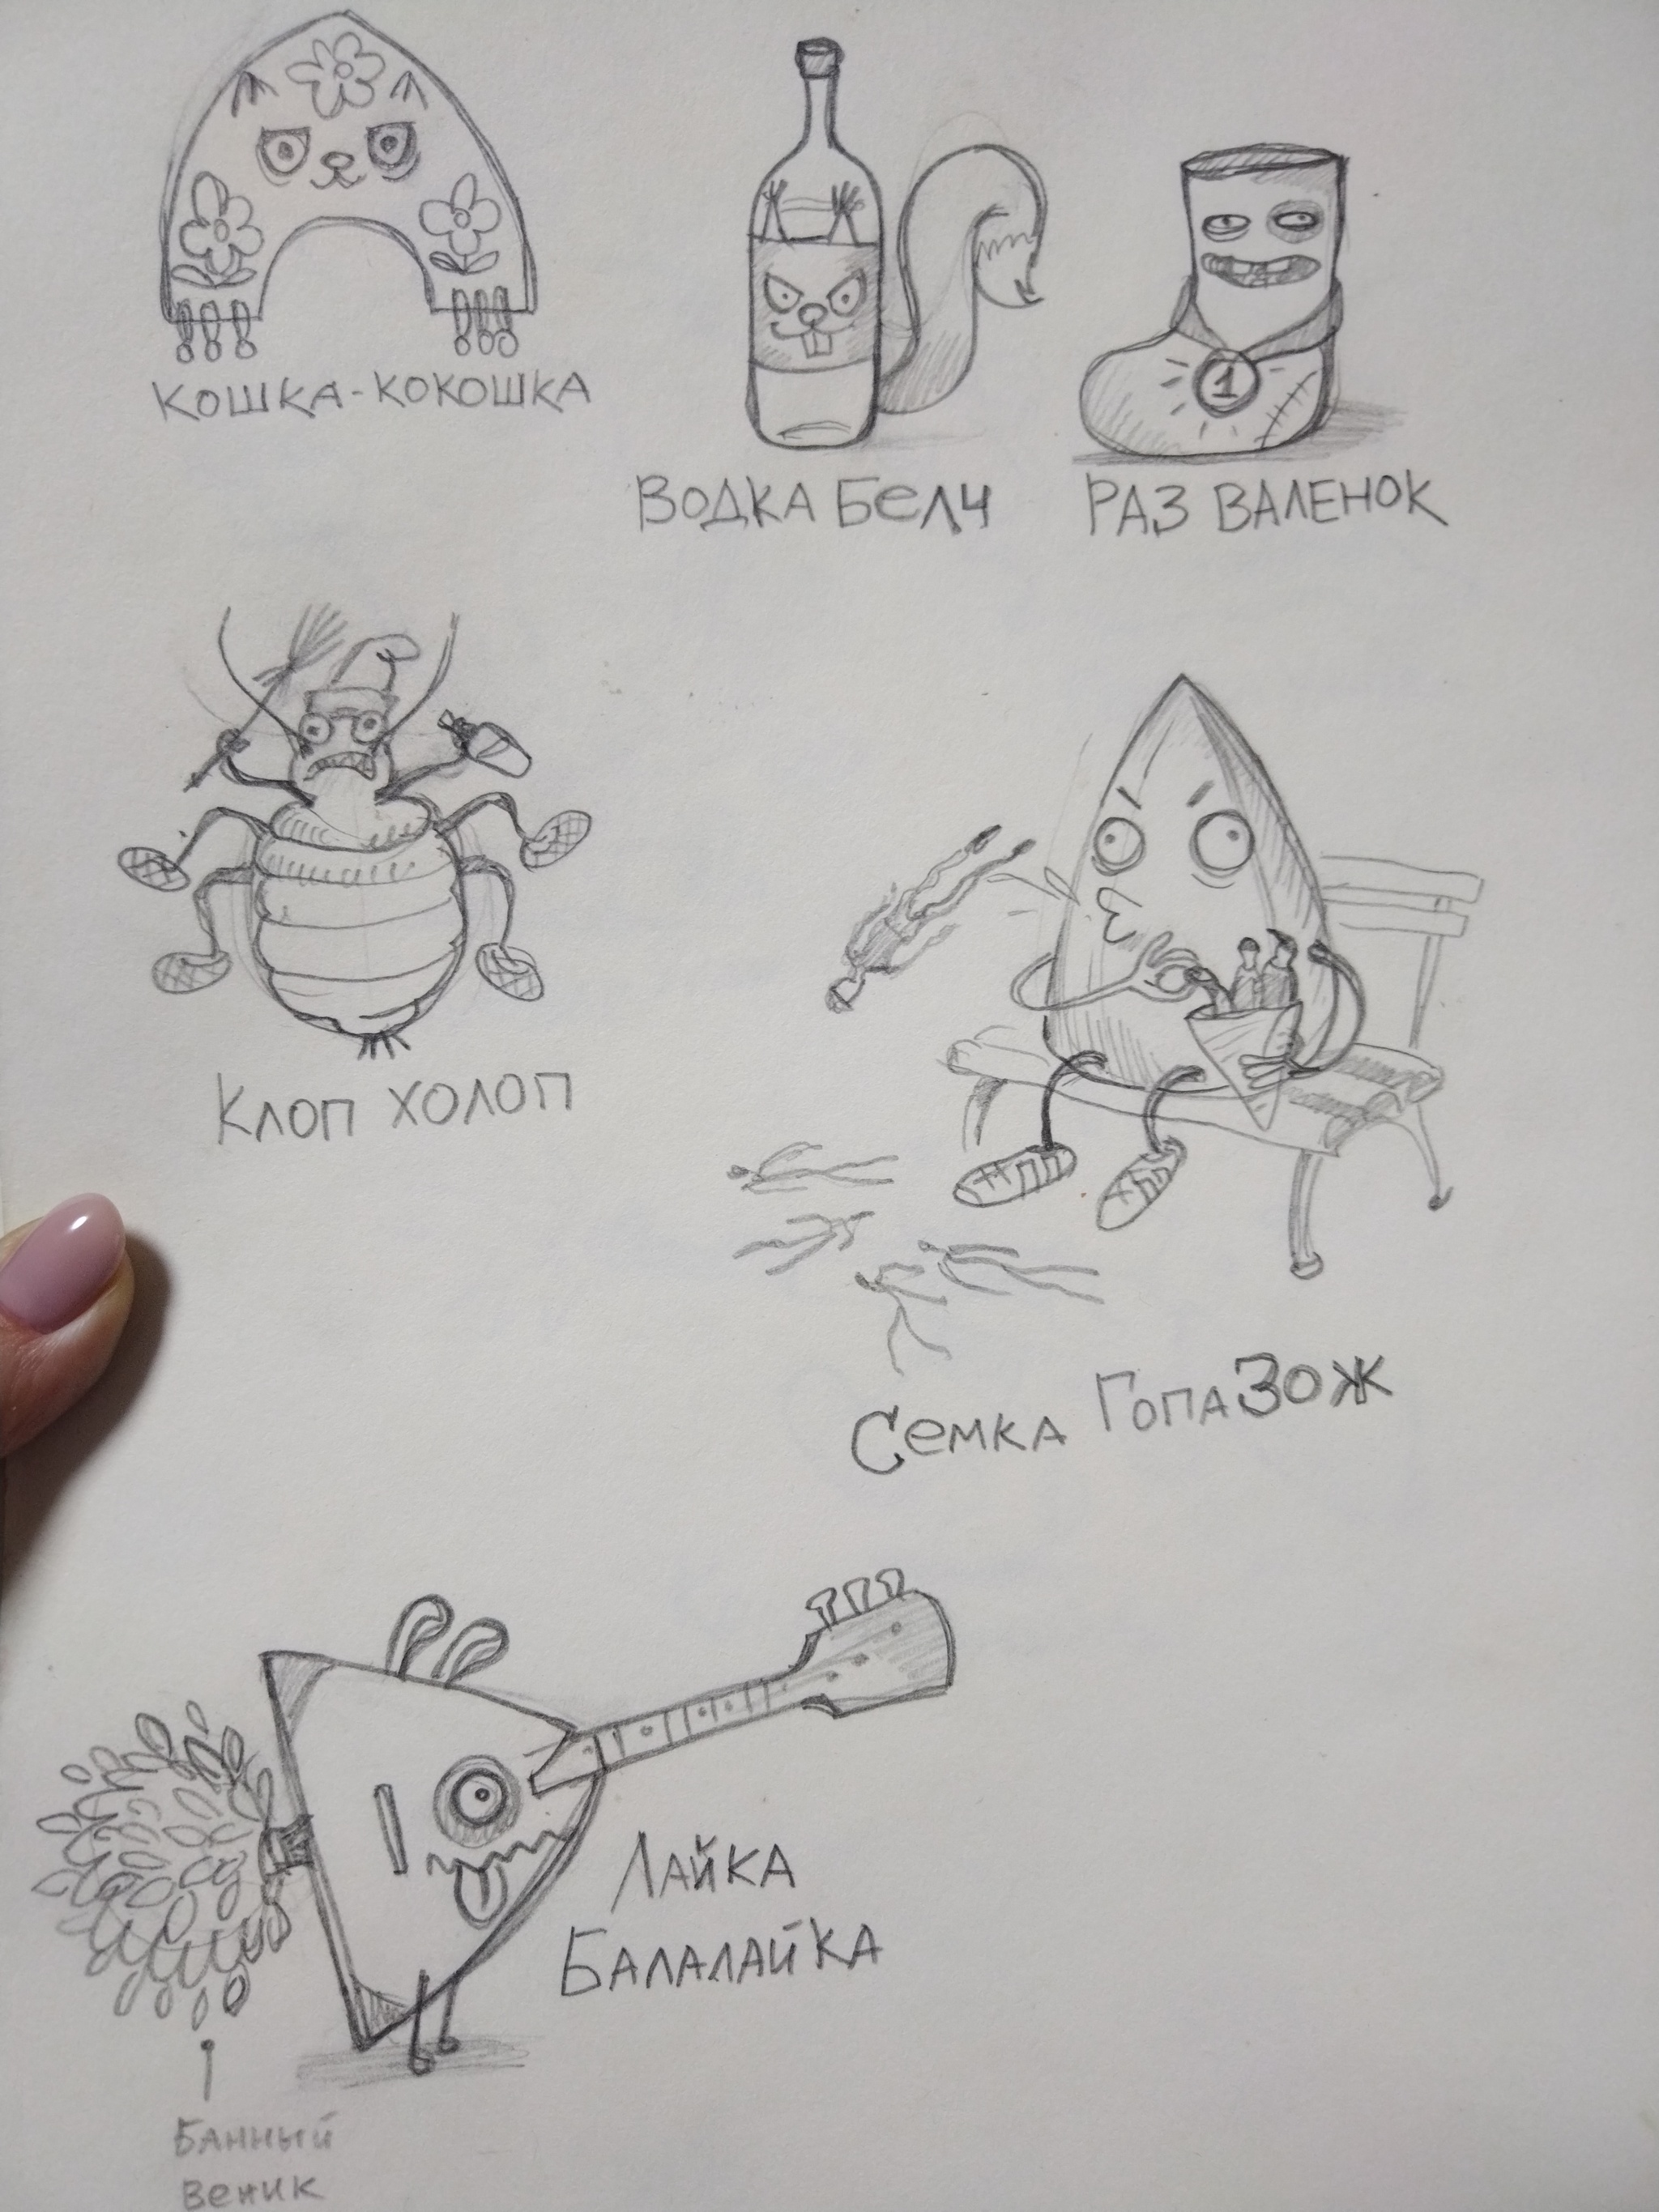 КОШКА-КОКОШКА
ВОДКА БЕЛЧ
1
РАЗ ВАЛЕНОК
КЛОП ХОЛОП
СЕМКА ГОПАЗОЖ
ЛАЙКА
БАЛАЛАЙКА
БАННЫЙ
ВЕНИК